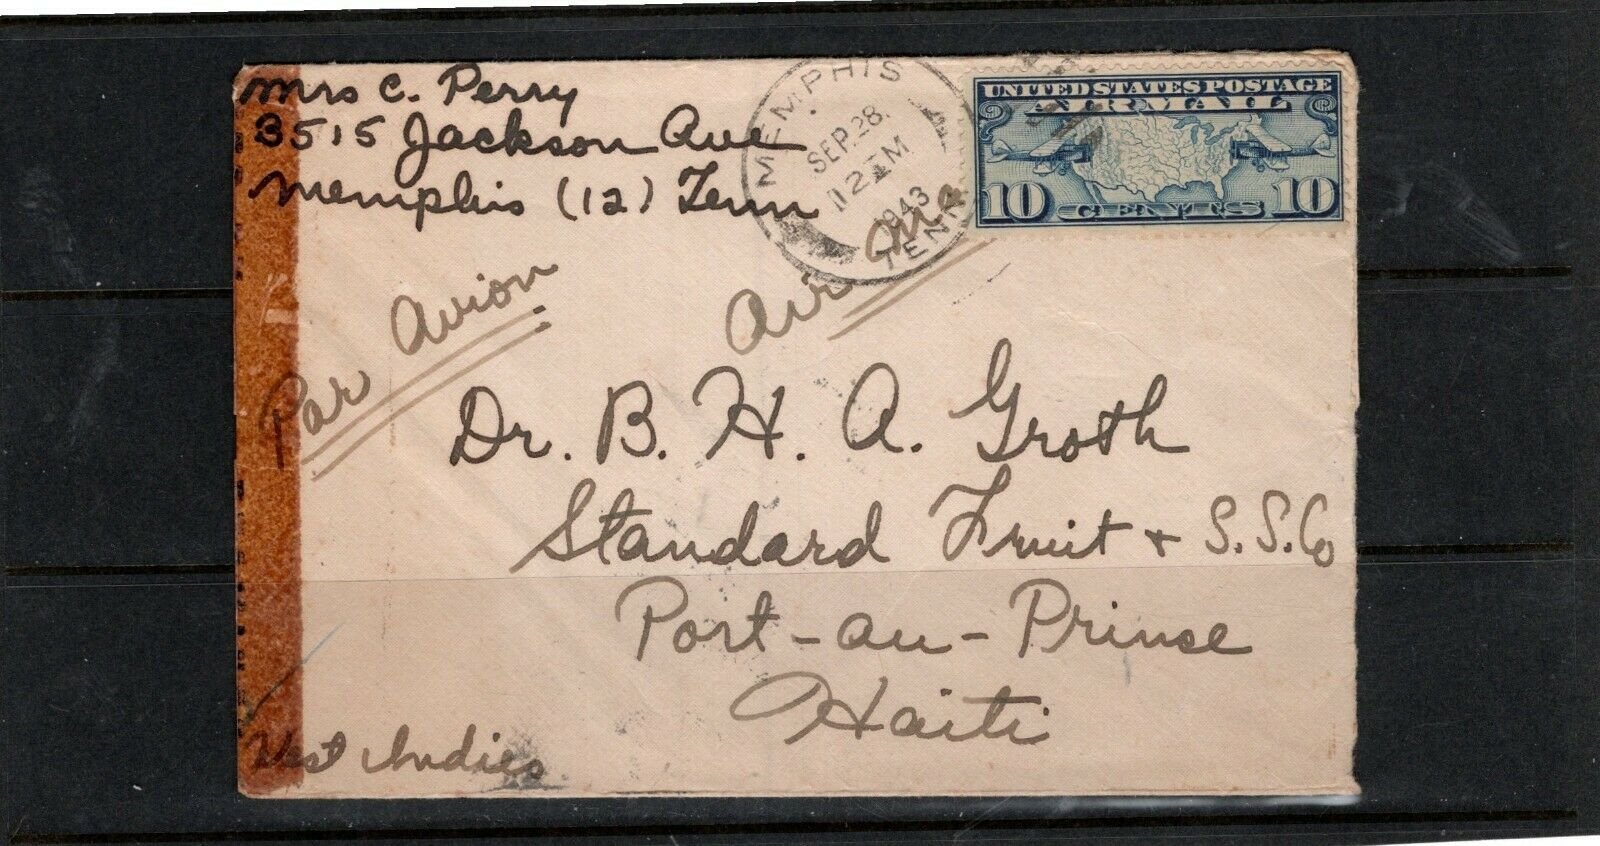 Mrs C. Perry
3515 Jackson Ave
Memphis (12) Tenn
MEMPHIS
SEP 28
12 AM
1943
TENN
UNITED STATES POSTAGE
AIR MAIL
10 CENTS 10
Par Avion
Air Ma
Dr. B. H. A. Groth
Standard Fruit + S. S. Co
Port-au-Prinse
Haiti
West Indies